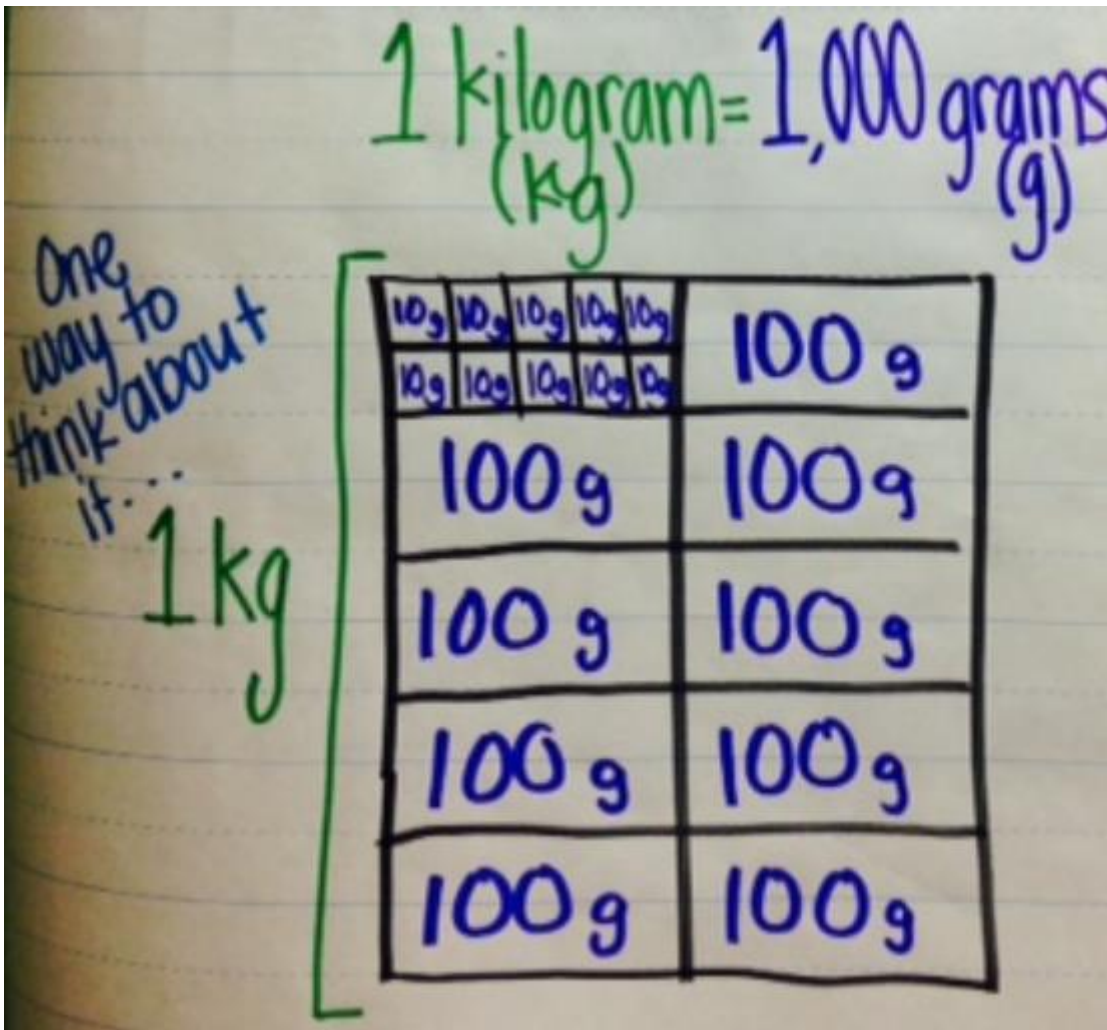 1 kilogram = 1,000 grams
(kg) (g)
One
way to
think about
it...
1 kg
10g 10g 10g 10g 10g 100 g
10g 10g 10g 10g 10g
100 g 100 g
100 g 100 g
100 g 100 g
100 g 100 g